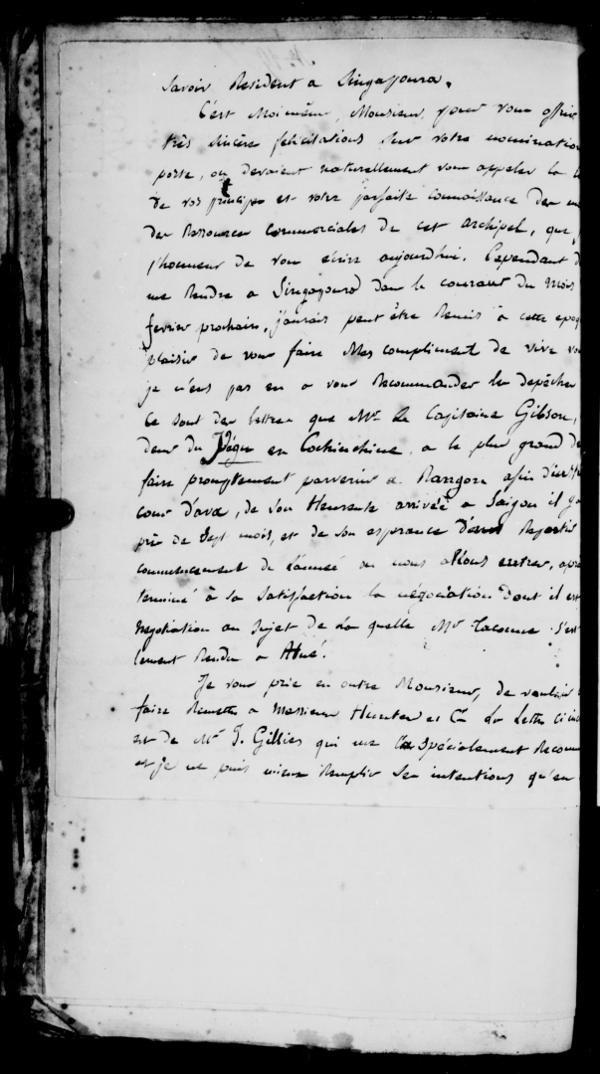 Savoir Resident a Singapoura.
C'est Moi même, Monsieur, pour vous offrir
très sincère felicitations sur votre nomination
poste, ou devaient naturellement vous appeler la
de vos principes et votre parfaite connaissance des
des Ressources Commerciales de cet Archipel, que j
l'honneur de vous ecrire aujourdhui. Cependant d
me Rendre a Singapoura dans le courant du Mois
fevrier prochain, j'aurais peut être Remis a cette epoq
plaisir de vous faire Mes compliment de vive vo
je n'eus pas eu a vous Recommander les depêches
Ce sont des lettres que Mr. Le Capitaine Gibson,
deur du Pégu en Cochinchine, a le plus grand de
faire promptement parvenir a Rangon afin d'
cour d'ava, de son Heureuse arrivée a Saigon il y a
près de Sept mois, et de son esperance d'en Repartir
commencement de l'année ou nous allons entrer, apr
terminé à sa satisfaction la négociation dont il est
Negotiation au sujet de la quelle Mr s'est
lement Rendu a Hué.
Je vous prie en outre Monsieur, de vouloir
faire Remettre a Messieurs Hunter et Co la Lettre ci in
est de Mr J. Gillies qui me l'a spécialement Recomm
et je ne puis mieux Remplir ses intentions qu'en